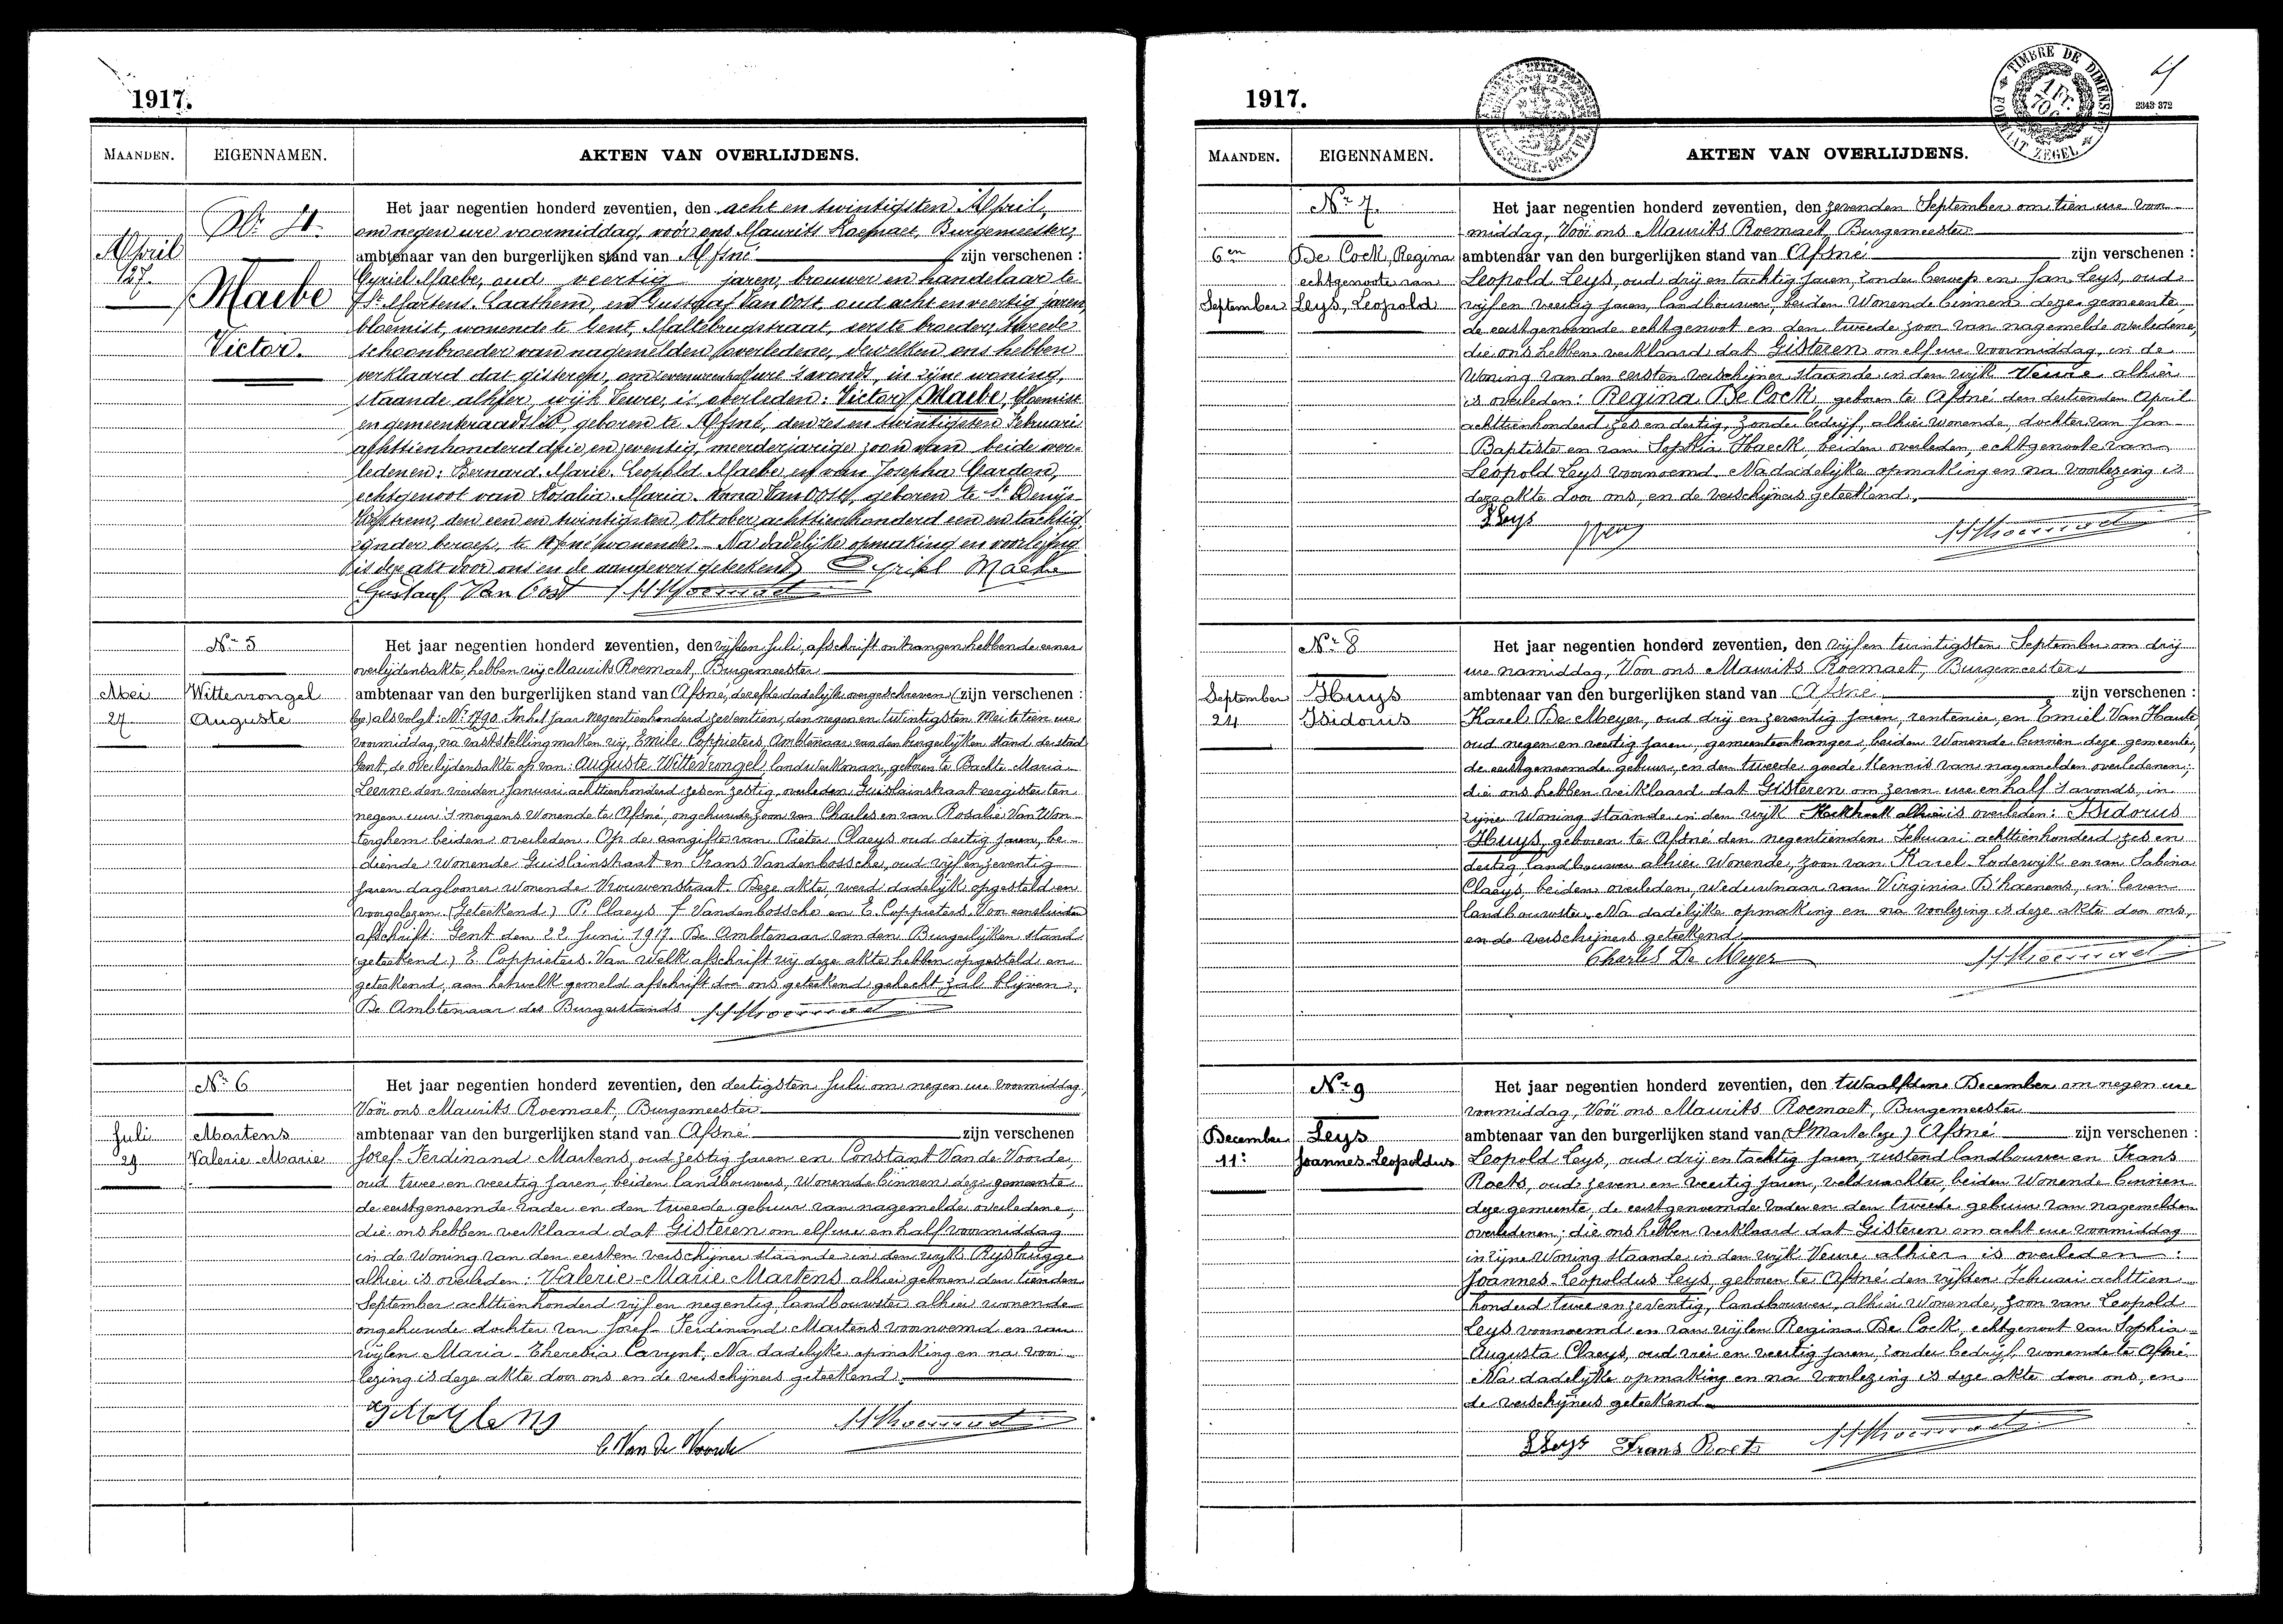 1917.
MAANDEN.
EIGENNAMEN.
AKTEN VAN OVERLIJDENS.
Nr 4.
April
27.
Maebe
Victor.
Het jaar negentien honderd zeventien, den acht en twintigsten April,
om negen ure voormiddag, voor ons Maurits Roemaet, Burgemeester,
ambtenaar van den burgerlijken stand van Afsné zijn verschenen :
Cyriel Maebe, oud veertig jaren, brouwer en handelaar te
St Martens-Laathem, en Gustaaf Van Oost, oud acht en veertig jaren,
bloemist, wonende te Gent, Maltebrugstraat, eerste broeder, tweede
schoonbroeder van nagemelden overledene, dewelken ons hebben
verklaard dat gisteren, om zeven ure half ure 's avonds, in zijne woning,
staande alhier, wijk Veure, is overleden: Victor Maebe, bloemist
en gemeenteraadslid, geboren te Afsné, den zes en twintigsten Februari
achttienhonderd drie en zeventig, meerderjarige zoon van beide over-
ledenen: Bernard-Marie-Leopold Maebe en van Josepha Gardon,
echtgenoot van Rosalia-Maria-Anna Van Oost, geboren te St Denijs-
Westrem, den een en twintigsten Oktober achttienhonderd een en tachtig,
zonder beroep, te Afsné wonende. - Na dadelijke opmaking en voorlezing
is deze akt door ons en de aangevers geteekend. Cyriel Maebe
Gustaaf Van Oost M Roemaet
Nr 5
Mei
27
Wittevrongel
Auguste
Het jaar negentien honderd zeventien, den vijfden Juli, afschrift ontvangen hebbende eener
overlijdensakte, hebben wij Maurits Roemaet, Burgemeester
ambtenaar van den burgerlijken stand van Afsné, dezelfde dadelijk overgeschreven (zijn verschenen :
bgs) als volgt: Nr 1790. In het jaar negentienhonderd zeventien, den negen en twintigsten Mei te tien ure
voormiddag, na vaststelling maken wij, Emile Coppieters, Ambtenaar van den burgerlijken stand der stad
Gent, de overlijdensakte op van: Auguste Wittevrongel, landwerkman, geboren te Bachte-Maria-
Leerne den vierden Januari achttienhonderd zes en zestig, overleden Guislainstraat eergisteren ten
negen uur 's morgens wonende te Afsné, ongehuwde zoon van Charles en van Rosalie Van Won-
terghem beiden overleden. Op de aangifte van Pieter Claeys oud dertig jaren, be-
diende wonende Guislainstraat en Frans Vandenbossche, oud vijf en zeventig
jaren daglooner wonende Vrouwenstraat. Deze akte, werd dadelijk opgesteld en
voorgelezen. (Geteekend) P. Claeys F Vandenbossche en E. Coppieters. Voor eensluidend
afschrift: Gent den 22 Juni 1917. De Ambtenaar van den Burgerlijken stand
(geteekend) E. Coppieters. Van welk afschrift wij deze akte hebben opgesteld en
geteekend, aan hetwelk gemeld afschrift door ons geteekend gehecht zal blijven.
De Ambtenaar des Burgerstands M Roemaet
Nr 6
Juli
29
Martens
Valerie-Marie
Het jaar negentien honderd zeventien, den dertigsten Juli om negen ure voormiddag,
Vóór ons Maurits Roemaet, Burgemeester
ambtenaar van den burgerlijken stand van Afsné zijn verschenen
Jozef-Ferdinand Martens, oud zestig jaren en Constant Van de Voorde,
oud twee en veertig jaren, beiden landbouwers, wonende binnen deze gemeente
de eerstgenoemde vader en den tweede gebuur van nagemelde overledene,
die ons hebben verklaard dat Gisteren om elf ure en half voormiddag
in de woning van den eersten verschijner staande in den wijk Rysbrugge
alhier is overleden: Valerie-Marie Martens alhier geboren den tienden
September achttienhonderd vijf en negentig, landbouwster alhier wonende
ongehuwde dochter van Jozef-Ferdinand Martens voornoemd en van
wijlen Maria-Theresia Cavynt. Na dadelijke opmaking en na voor-
lezing is deze akte door ons en de verschijners geteekend.
C. Van De Voorde
M Roemaet
1917.
TIMBRE DE DIMENSION
FORMAAT ZEGEL
1 Fr.
70 c.
2343 372
MAANDEN.
EIGENNAMEN.
AKTEN VAN OVERLIJDENS.
Nr 7.
6en
September
De Cock, Regina
echtgenoote van
Leys, Leopold
Het jaar negentien honderd zeventien, den zevenden September om tien ure voor-
middag, Vóór ons Maurits Roemaet, Burgemeester
ambtenaar van den burgerlijken stand van Afsné zijn verschenen :
Leopold Leys, oud drij en tachtig jaren, zonder beroep en Jan Leys, oud
vijf en veertig jaren, landbouwer, beiden wonende binnen deze gemeente,
de eerstgenoemde echtgenoot en den tweede zoon van nagemelde overledene,
die ons hebben verklaard dat Gisteren om elf ure voormiddag, in de
woning van den eersten verschijner staande in den wijk Veure alhier
is overleden: Regina De Cock geboren te Afsné den dertienden April
achttienhonderd zes en dertig, zonder bedrijf, alhier wonende, dochter van Jan-
Baptiste en van Sophia Haeck, beiden overleden, echtgenoote van
Leopold Leys voornoemd. Na dadelijke opmaking en na voorlezing is
deze akte door ons, en de verschijners geteekend.
L Leys
M Roemaet
Nr 8
September
24
Huys
Isidorus
Het jaar negentien honderd zeventien, den vijf en twintigsten September om drij
ure namiddag, Voor ons Maurits Roemaet, Burgemeester
ambtenaar van den burgerlijken stand van Afsné zijn verschenen :
Karel De Meyer, oud drij en zeventig jaren, rentenier, en Emiel Van Haute
oud negen en veertig jaren, gemeenteontvanger, beiden wonende binnen deze gemeente,
de eerstgenoemde gebuur, en den tweede goede kennis van nagemelden overledenen;
die ons hebben verklaard dat Gisteren om zeven ure en half 's avonds, in
zijne woning staande in den wijk Hoekhoek alhier is overleden: Isidorus
Huys, geboren te Afsné den negentienden Februari achttienhonderd zes en
dertig, landbouwer alhier wonende, zoon van Karel-Lodewijk en van Sabina
Claeys, beiden overleden, weduwnaar van Virginia D'haenens, in leven
landbouwster. Na dadelijke opmaking en na voorlezing is deze akte door ons,
en de verschijners geteekend.
Charles De Meyer
M Roemaet
Nr 9
December
11:
Leys
Joannes-Leopoldus
Het jaar negentien honderd zeventien, den twaalfden December om negen ure
voormiddag, Vóór ons Maurits Roemaet, Burgemeester
ambtenaar van den burgerlijken stand van Afsné zijn verschenen :
Leopold Leys, oud drij en tachtig jaren, rustend landbouwer en Frans
Roets, oud zeven en veertig jaren, veldwachter beiden wonende binnen
deze gemeente, de eerstgenoemde vader en den tweede gebuur van nagemelden
overledenen; die ons hebben verklaard dat Gisteren om acht ure voormiddag
in zijne woning staande in den wijk Veure alhier is overleden:
Joannes-Leopoldus Leys, geboren te Afsné den vijfden Februari achttien
honderd twee en zeventig, landbouwer, alhier wonende, zoon van Leopold
Leys voornoemd en van wijlen Regina De Cock, echtgenoot van Sophia-
Augusta Claeys, oud vier en veertig jaren, zonder bedrijf, wonende te Afsné.
Na dadelijke opmaking en na voorlezing is deze akte door ons, en
de verschijners geteekend
L Leys Frans Roets M Roemaet